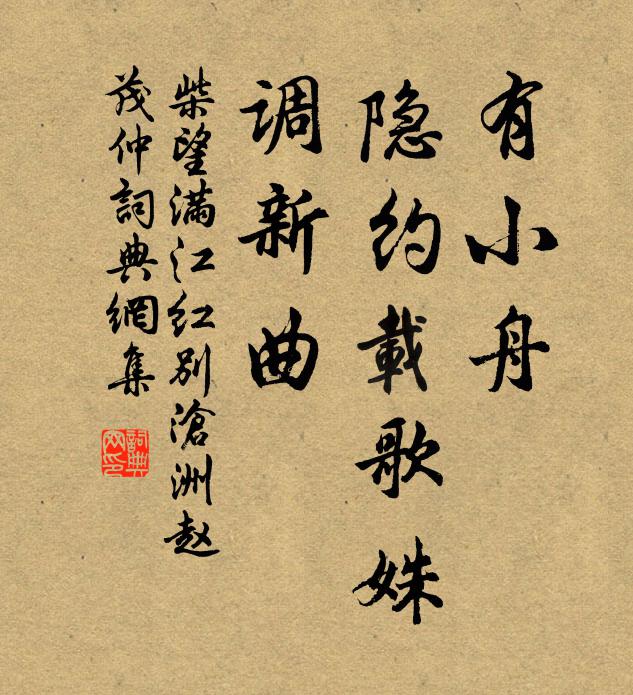 有小舟
隐约載歌姝
调新曲
柴望满江红别滄洲赵
茂仲詞典網集
詞典
网印